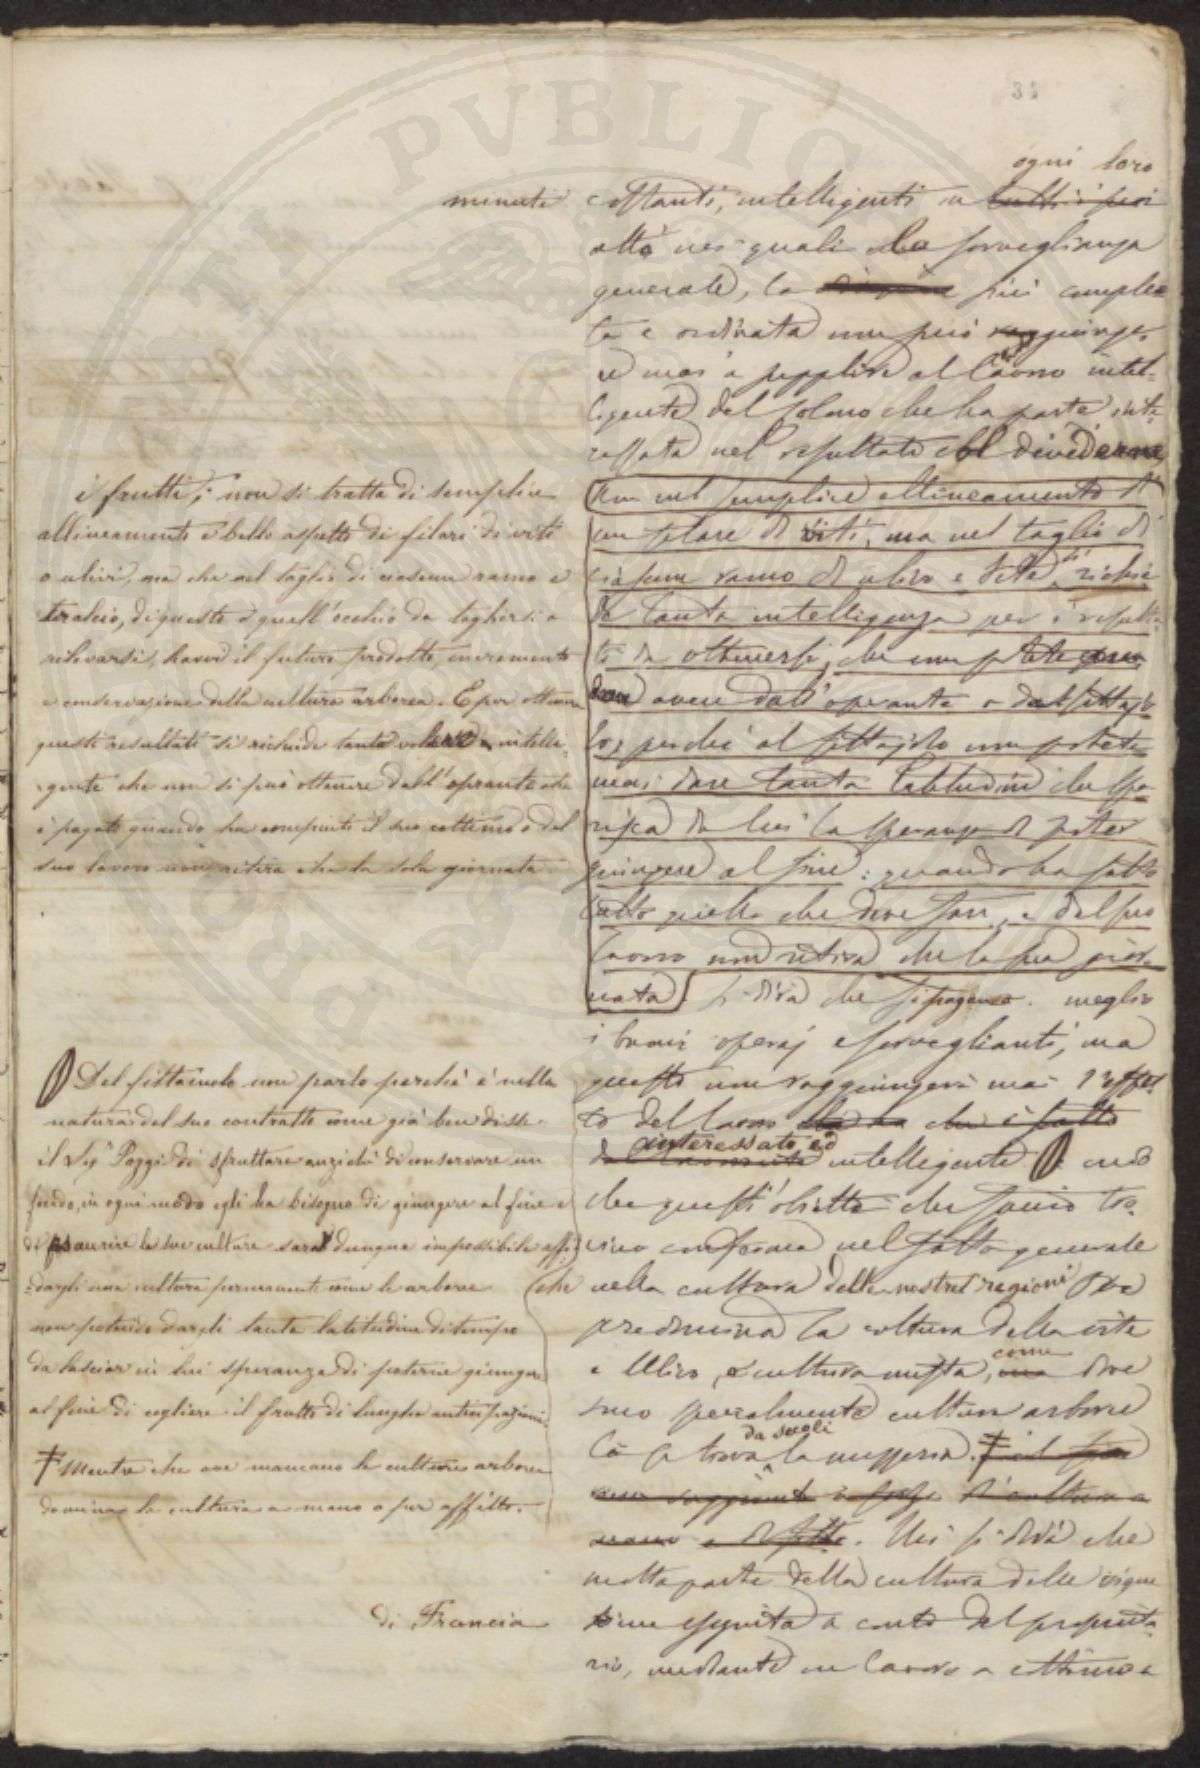 32
ogni loro
minuti costanti, intelligenti in tutti i suoi
atti nei quali la sorveglianza
generale, la più comple
ta e ordinata non può raggiunge
re mai a supplire al lavoro intel-
ligente del colono che ha parte inte
ressata nel resultato col dividerne
non nel semplice allineamento di
un filare di viti, ma nel taglio di
ciascun ramo di ulivo e vite, si richie
de tanta intelligenza per i resulta
ti da ottenersi, che non potete
avere dall'operante o dal fittajo
lo, perché al fittajolo non potete
mai dare tanta latitudine che
in lui la speranza di poter
giungere al fine: quando ha fatto
tutto quello che deve fare, e dal suo
lavoro non ritira che la sua gior-
nata. Si dirà che si pagano meglio
i buoni operaj e sorveglianti, ma
questo non raggiungerà mai l'effet-
to del lavoro che è fatto
interessato ed
da intelligente credo
che quest'obietto che faccio tro-
vino conferma nel fatto generale
che nella cultura delle nostre regioni ove
predomina la coltura della vite
e ulivo, o cultura mista, come ove
sono specialmente culture arboree
da secoli
là si trova la mezzeria.
mano e di fitto. Mi si dirà che
molta parte della cultura delle vigne
di Francia viene eseguita a conto del proprieta-
rio, mediante un lavoro a cottimo e
i frutti; non si tratta di semplice
allineamento e bello aspetto di filari di viti
o ulivi, ma che nel taglio di ciascun ramo e
tralcio, di questo o quell'occhio da togliersi o
rilevarsi, havvi il futuro prodotto, incremento
e conservazione della cultura arborea. E per ottenere
questi resultati si richiede tanto volere intelli-
gente che non si può ottenere dall'oprante che
è pagato quando ha compiuto il suo cottimo o del
suo lavoro non ritira che la sola giornata.
Del fittaiuolo non parlo perchè è nella
natura del suo contratto come già ben disse
il Sig.r Poggi di sfruttare anzichè di conservare un
fondo, in ogni modo egli ha bisogno di giungere al fine e
di esaurire le sue culture sarà dunque impossibile affi-
dargli una cultura permanente come le arboree
non potendo dargli tanta latitudine di tempo
da lasciar in lui speranza di poterne giungere
al fine di cogliere il frutto di lunghe anticipazioni
Mentre che ove mancano le culture arboree
domina la cultura a mano o per affitto.